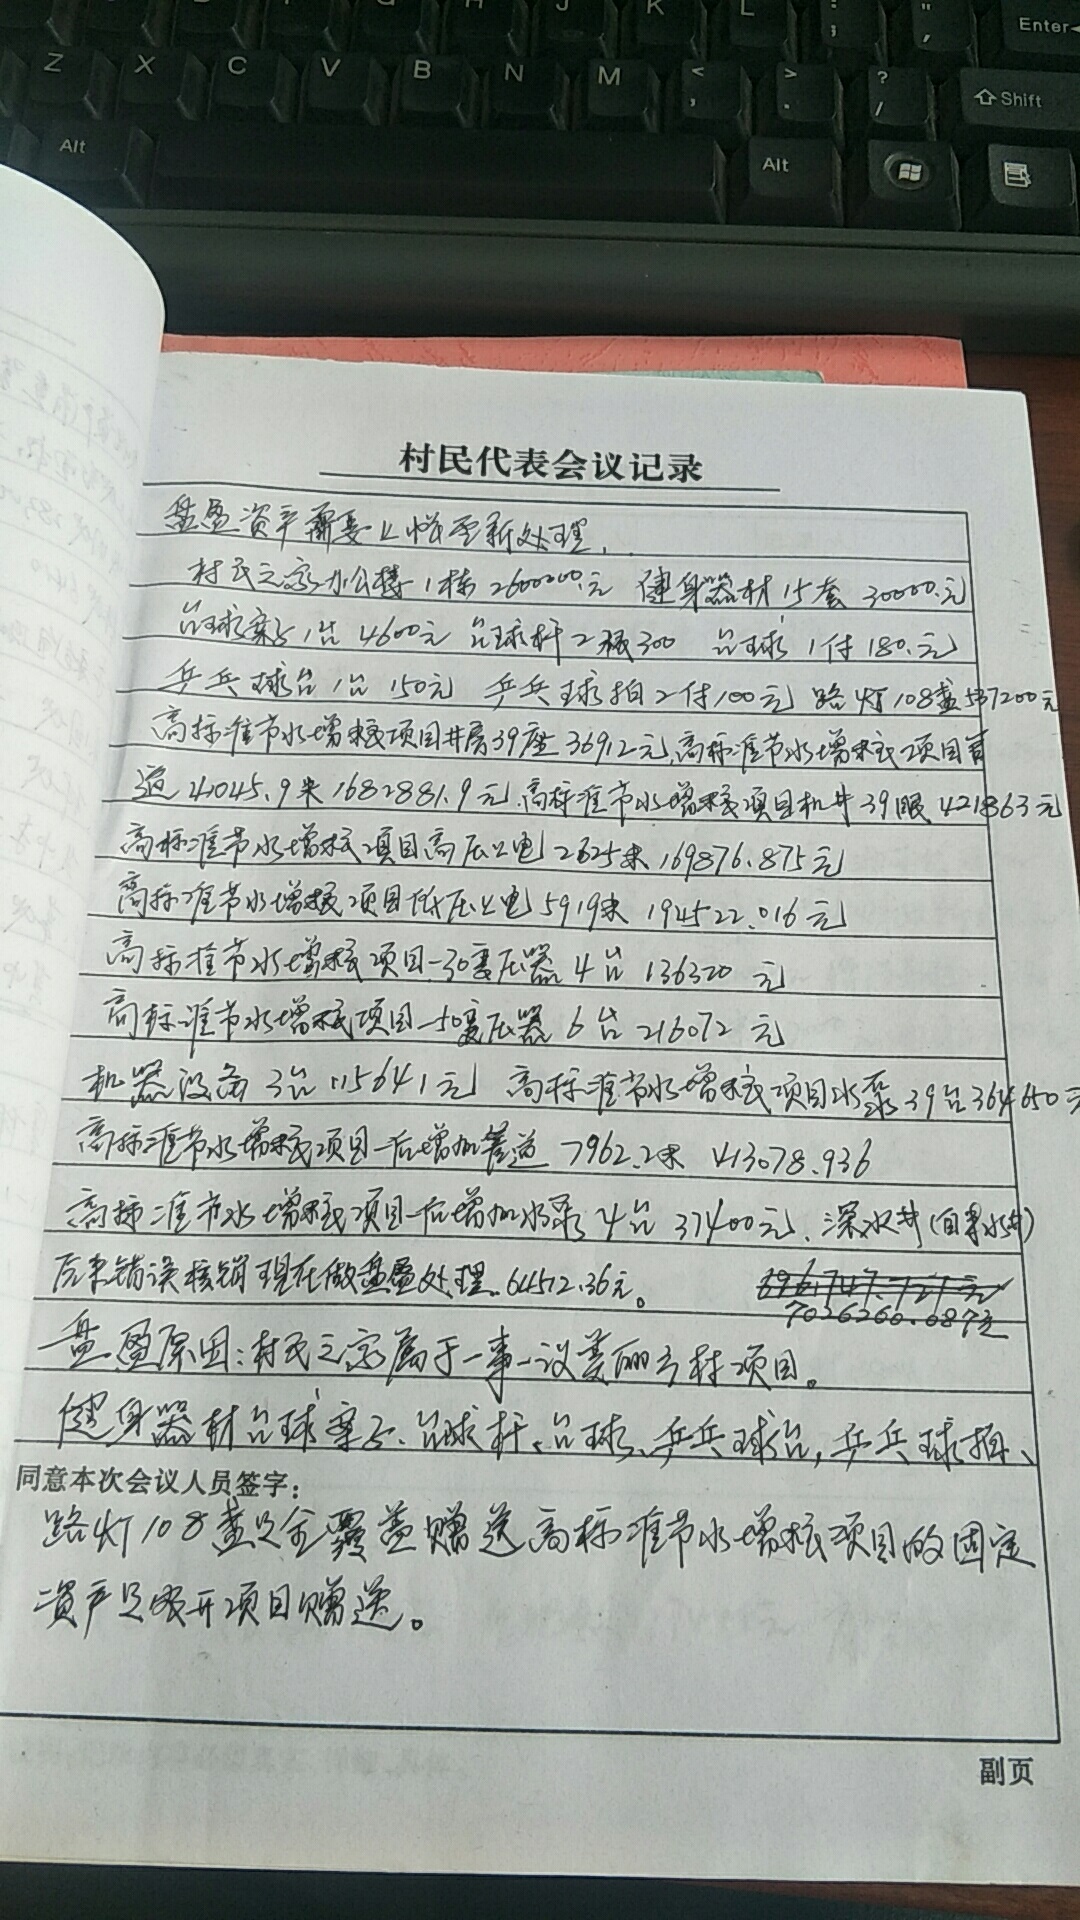 Z X C V B N M < , > . ? / Shift
H J K L : ; " , Enter
Alt Alt
村民代表会议记录
盘盈资产需要上帐重新处理.
村民之家办公楼1栋2600000.元 健身器材15套30000.元
台球案子1台4600元 台球杆2根300 台球1付180.元
乒乓球台1台150元 乒乓球拍2付100元 路灯108盏537200元
高标准节水增粮项目井房39座36912元,高标准节水增粮项目管
道41045.9米1682881.9元.高标准节水增粮项目机井39眼421863元
高标准节水增粮项目高压线2625米169876.875元
高标准节水增粮项目低压线5919米194522.016元
高标准节水增粮项目-30变压器4台136320元
高标准节水增粮项目-50变压器6台216072元
机器设备3台115641元 高标准节水增粮项目水泵39台364650元
高标准节水增粮项目-后增加管道7962.2米413078.936
高标准节水增粮项目-后增加水泵4台37400元、深水井(自来水井)
后来错误核销现在做盘盈处理.64512.36元。
7026260.087元
盘盈原因:村民之家属于一事一议美丽乡村项目。
健身器材台球案子、台球杆、台球、乒乓球台,乒乓球拍、
同意本次会议人员签字:
路灯108盏是全覆盖赠送高标准节水增粮项目的固定
资产是农开项目赠送。
副页